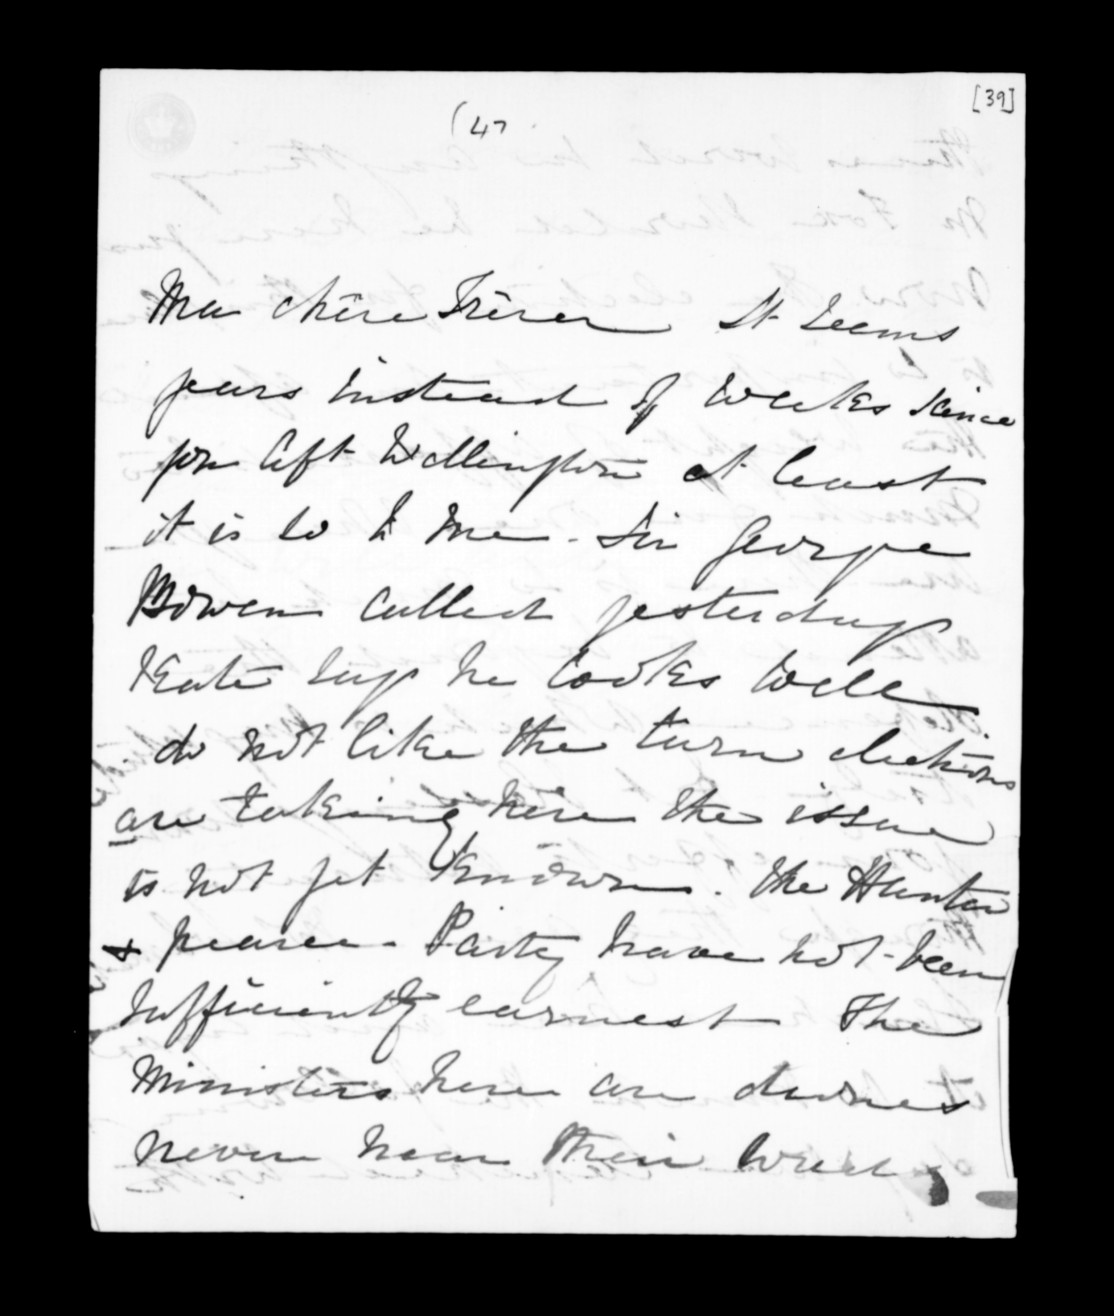 [39]
(47
Ma chère Frèrer It seems
years instead of weeks since
you left Wellington at least
it is so to me. Sir George
Bowen called yesterday
Kate says he looks well
do not like the turn elections
are taking here the issue
is not yet known. The Hunter
& pearce - Party have not been
sufficiently earnest The
Ministers here are
never hear their